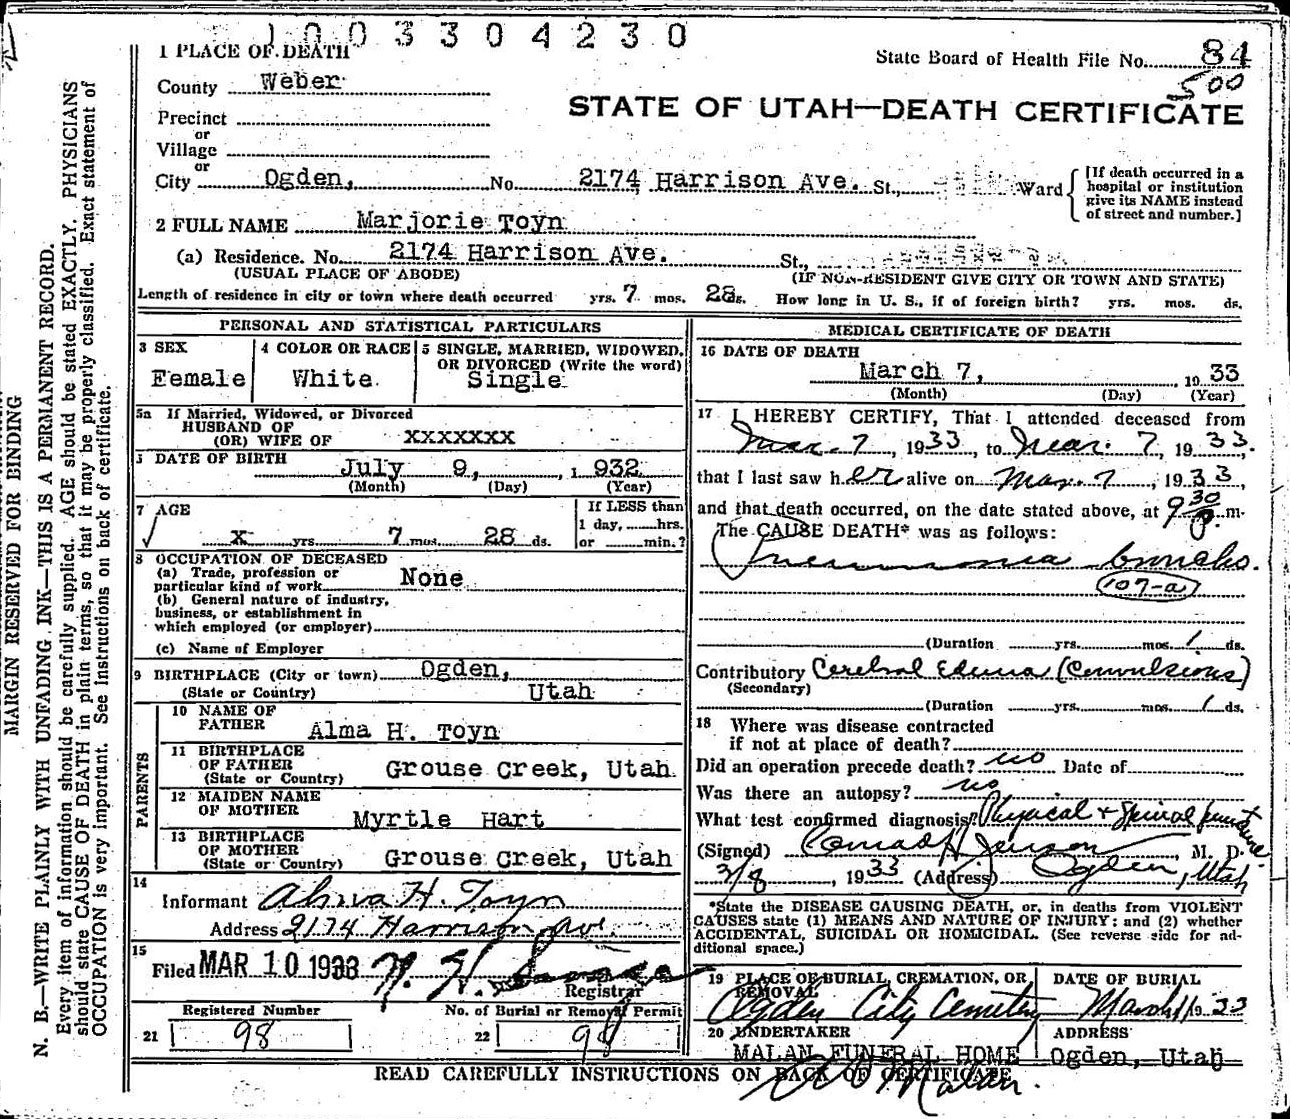 1003304230
1 PLACE OF DEATH
State Board of Health File No. 84
500
County Weber
STATE OF UTAH—DEATH CERTIFICATE
Precinct
or
Village
or
City Ogden, No. 2174 Harrison Ave. St., Ward
[If death occurred in a hospital or institution give its NAME instead of street and number.]
2 FULL NAME Marjorie Toyn
(a) Residence. No. 2174 Harrison Ave. St.,
(USUAL PLACE OF ABODE) (IF NON-RESIDENT GIVE CITY OR TOWN AND STATE)
Length of residence in city or town where death occurred yrs. 7 mos. 28 ds. How long in U. S., if of foreign birth? yrs. mos. ds.
PERSONAL AND STATISTICAL PARTICULARS
3 SEX
Female
4 COLOR OR RACE
White
5 SINGLE, MARRIED, WIDOWED, OR DIVORCED (Write the word)
Single
5a If Married, Widowed, or Divorced
HUSBAND OF
(OR) WIFE OF xxxxxxx
DATE OF BIRTH
July 9, 1932
(Month) (Day) (Year)
7 AGE
x yrs. 7 mos. 28 ds.
If LESS than
1 day, hrs.
or min.?
8 OCCUPATION OF DECEASED
(a) Trade, profession or
particular kind of work None
(b) General nature of industry,
business, or establishment in
which employed (or employer)
(c) Name of Employer
9 BIRTHPLACE (City or town) Ogden,
(State or Country) Utah
PARENTS
10 NAME OF
FATHER Alma H. Toyn
11 BIRTHPLACE
OF FATHER
(State or Country) Grouse Creek, Utah
12 MAIDEN NAME
OF MOTHER Myrtle Hart
13 BIRTHPLACE
OF MOTHER
(State or Country) Grouse Creek, Utah
14
Informant Alma H. Toyn
Address 2174 Harrison Ave
15
Filed MAR 10 1933
Registrar
Registered Number No. of Burial or Removal Permit
21 98 22 98
MEDICAL CERTIFICATE OF DEATH
16 DATE OF DEATH
March 7, 1933
(Month) (Day) (Year)
17 I HEREBY CERTIFY, That I attended deceased from
Mar. 7, 1933, to Mar. 7, 1933,
that I last saw her alive on Mar. 7, 1933,
and that death occurred, on the date stated above, at 9 30 P. m.
The CAUSE DEATH* was as follows:
Pneumonia broncho.
107-a
(Duration yrs. mos. 1 ds.
Contributory Cerebral Edema (Convulsions)
(Secondary)
(Duration yrs. mos. 1 ds.
18 Where was disease contracted
if not at place of death?
Did an operation precede death? no Date of
Was there an autopsy? no
What test confirmed diagnosis? Physical & Spinal puncture
(Signed) Conrad H Jenson, M. D.
3/8, 1933 (Address) Ogden, Utah
*State the DISEASE CAUSING DEATH, or, in deaths from VIOLENT
CAUSES state (1) MEANS AND NATURE OF INJURY; and (2) whether
ACCIDENTAL, SUICIDAL OR HOMICIDAL. (See reverse side for ad-
ditional space.)
19 PLACE OF BURIAL, CREMATION, OR
REMOVAL
Ogden City Cemetery
DATE OF BURIAL
March 1933
20 UNDERTAKER
MALAN FUNERAL HOME
ADDRESS
Ogden, Utah
Malan.
READ CAREFULLY INSTRUCTIONS ON BACK OF CERTIFICATE
MARGIN RESERVED FOR BINDING
N. B.—WRITE PLAINLY WITH UNFADING INK—THIS IS A PERMANENT RECORD.
Every item of information should be carefully supplied. AGE should be stated EXACTLY. PHYSICIANS
should state CAUSE OF DEATH in plain terms, so that it may be properly classified. Exact statement of
OCCUPATION is very important. See instructions on back of certificate.